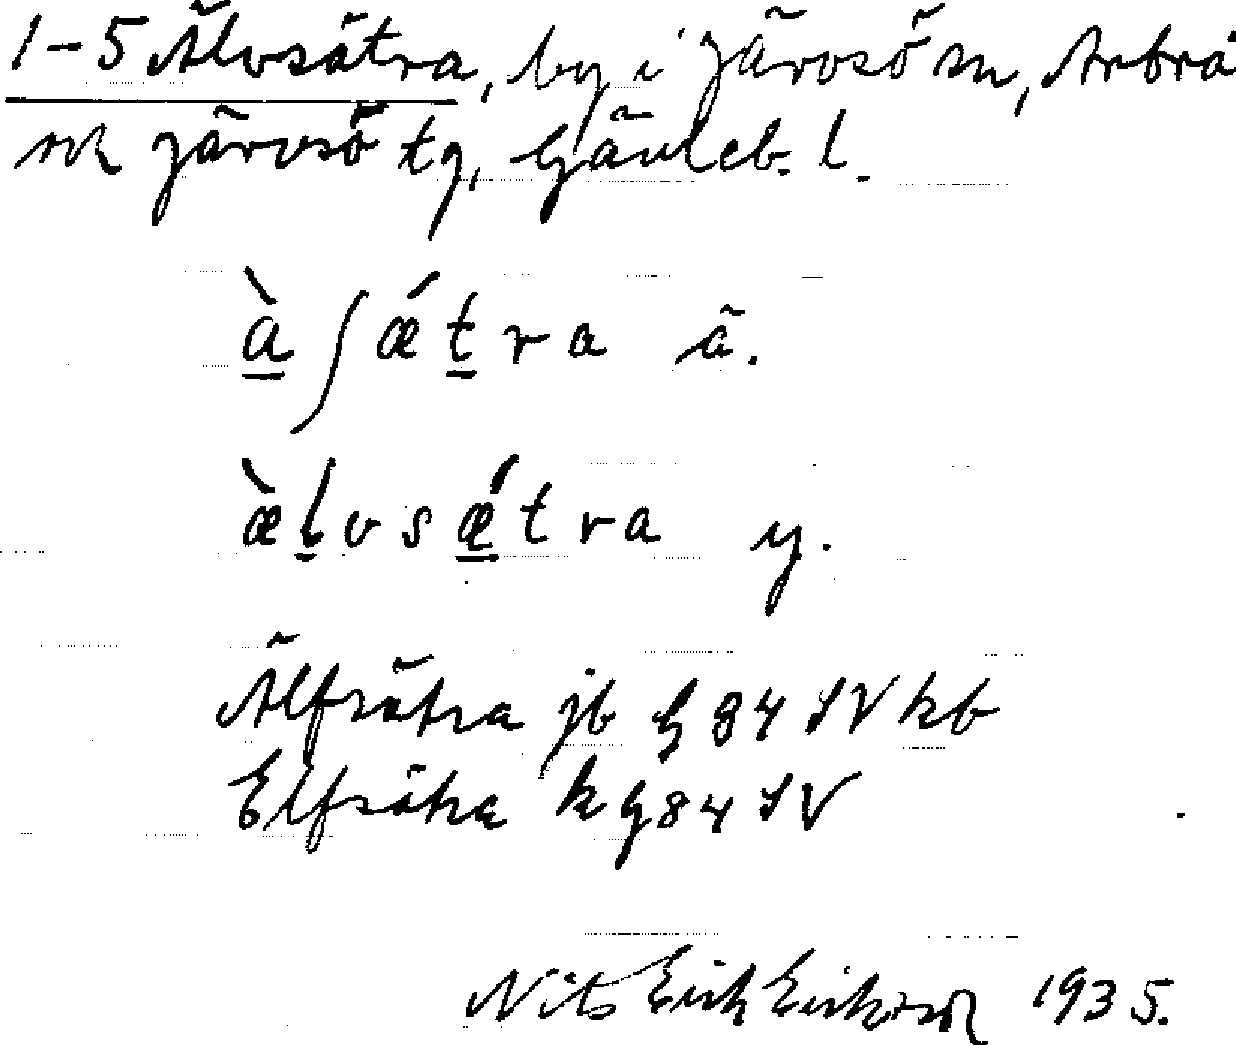 1-5 Älvsätra, by i Järvsö sn, Arbrå
och Järvsö tg, Gävleb. l.
à̱ ʃ ǽ ṯ r a ä.
æ̀ ḻ v s ǽ̱ t r a y.
Älfsätra jb G 84 IV kb
Elfsätra k G 84 IV
Nils Erik Eriksson 1935.